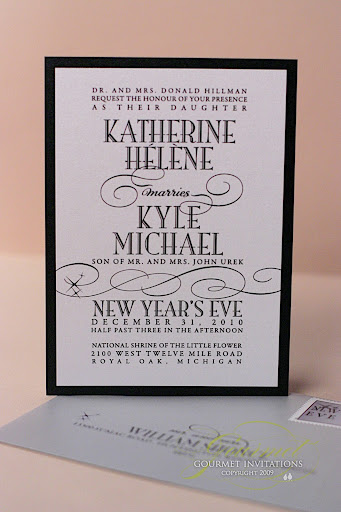 DR. AND MRS. DONALD HILLMAN
REQUEST THE HONOUR OF YOUR PRESENCE
AS THEIR DAUGHTER
KATHERINE
HÉLÈNE
marries
KYLE
MICHAEL
SON OF MR. AND MRS. JOHN UREK
NEW YEAR'S EVE
DECEMBER 31, 2010
HALF PAST THREE IN THE AFTERNOON
NATIONAL SHRINE OF THE LITTLE FLOWER
2100 WEST TWELVE MILE ROAD
ROYAL OAK, MICHIGAN
NEW
EVE
WILLIAM
GOURMET INVITATIONS
COPYRIGHT 2009